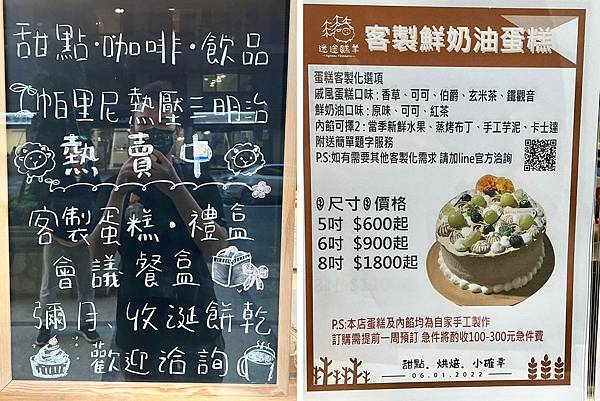 甜點·咖啡·飲品
帕里尼熱壓三明治
熱賣中
客製蛋糕·禮盒
會議餐盒
彌月、收涎餅乾
歡迎洽詢
迷途羔羊
客製鮮奶油蛋糕
蛋糕客製化選項
戚風蛋糕口味:香草、可可、伯爵、玄米茶、鐵觀音
鮮奶油口味:原味、可可、紅茶
內餡可擇2:當季新鮮水果、蒸烤布丁、手工芋泥、卡士達
附送簡單題字服務
P.S:如有需要其他客製化需求 請加line官方洽詢
尺寸 價格
5吋 $600起
6吋 $900起
8吋 $1800起
P.S:本店蛋糕及內餡均為自家手工製作
訂購需提前一周預訂 急件將酌收100-300元急件費
甜點。烘焙。小確幸
06.01.2022